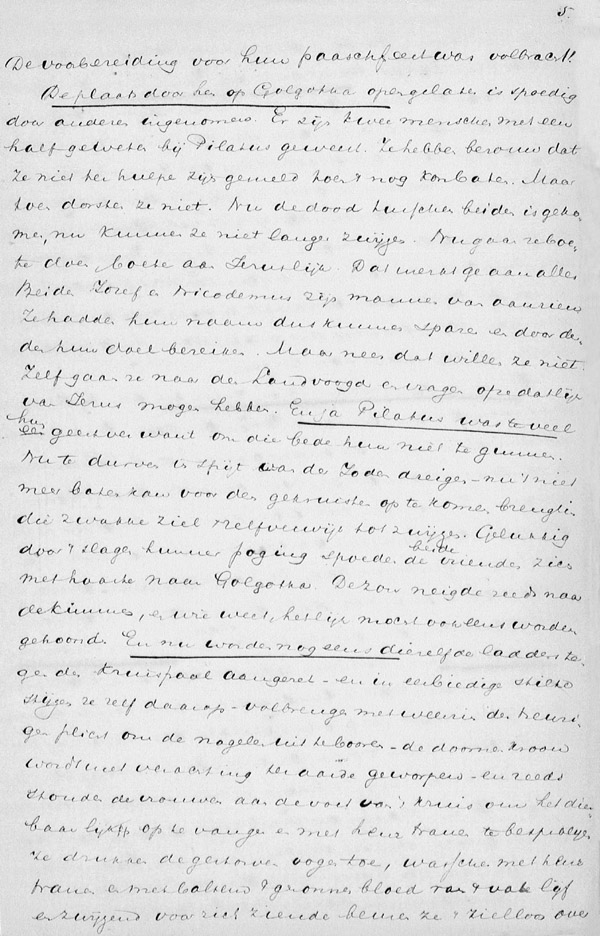 5.
De voorbereiding voor hun paaschfeest was volbracht!
De plaats door hen op Golgotha opengelaten is spoedig
door anderen ingenomen. Er zijn twee menschen met een
half geweten bij Pilatus geweest. Ze hebben berouw dat
ze niet ter hulpe zijn gesneld toen 't nog kon baten. Maar
toen dorsten ze niet. Nu de dood tusschen beiden is geko-
men, nu kunnen ze niet langer zwijgen. Nu gaan ze boe-
te doen, boete aan Jezus lijk. Dat merkt ge aan alles
Beide Jozef en Nicodemus zijn mannen van aanzien
Ze hadden hun naam dus kunnen sparen en door de.
den hun doel bereiken. Maar neen dat willen ze niet.
Zelf gaan ze naar den Landvoogd en vragen of ze dat lijk
van Jezus mogen hebben. En ja Pilatus was te veel
hun geestverwant om die bede hun niet te gunnen.
Nu te durven ten spijt van der Joden dreigen - nu 't niet
meer baten kan voor den gekruisten op te komen, brengt in
die zwakke ziel 't zelfverwijt tot zwijgen. Gelukkig
door 't slagen hunner poging spoeden de beide vrienden zich
met haaste naar Golgotha. De zon neigde reeds naar
de kimmen, en wie weet, het lijk mocht ook eens worden
gehoond. En nu worden nog eens diezelfde ladders te-
gen den kruispaal aangezet - en in eerbiedige stilte
stijgen ze zelf daarop - volbrengen met weemoed den treuri-
gen plicht om de nagelen uit te booren - de doornenkroon
wordt met verachting ter aarde geworpen - en reeds
stonden de vrouwen aan de voet van 't kruis om het dier-
baar lijk op te vangen en met heur tranen te besproeijen
Ze drukken de gestorven oogen toe, wasschen met heur
tranen en met balsem 't geronnen bloed van 't vale lijf
en zwijgend voor zich ziende beuren ze 't zielloos over